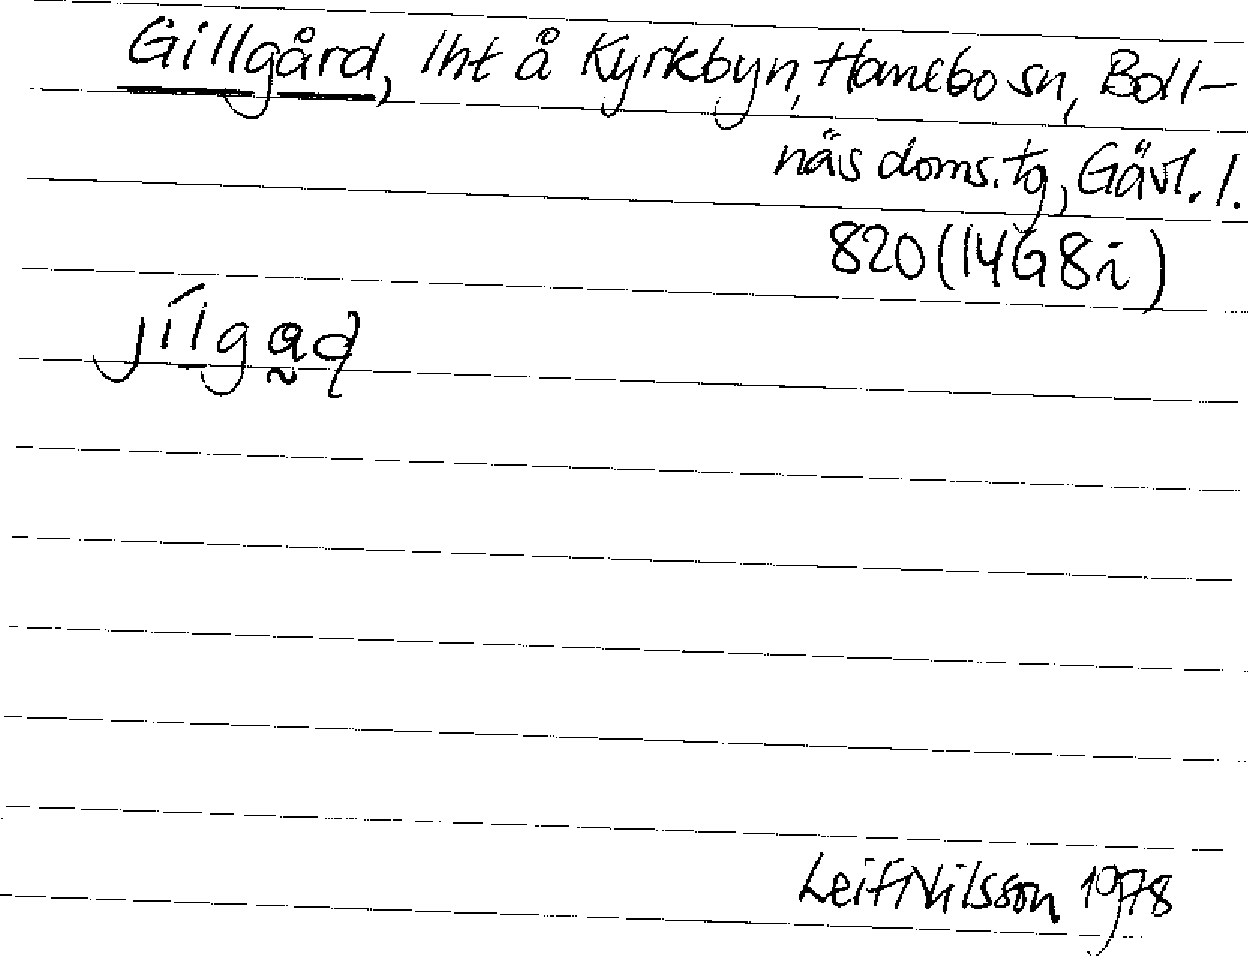 Gillgård, lht å Kyrkbyn, Hanebo sn, Boll-
näs doms. tg, Gävl. l.
820 (14G8i)
Leif Nilsson 1978